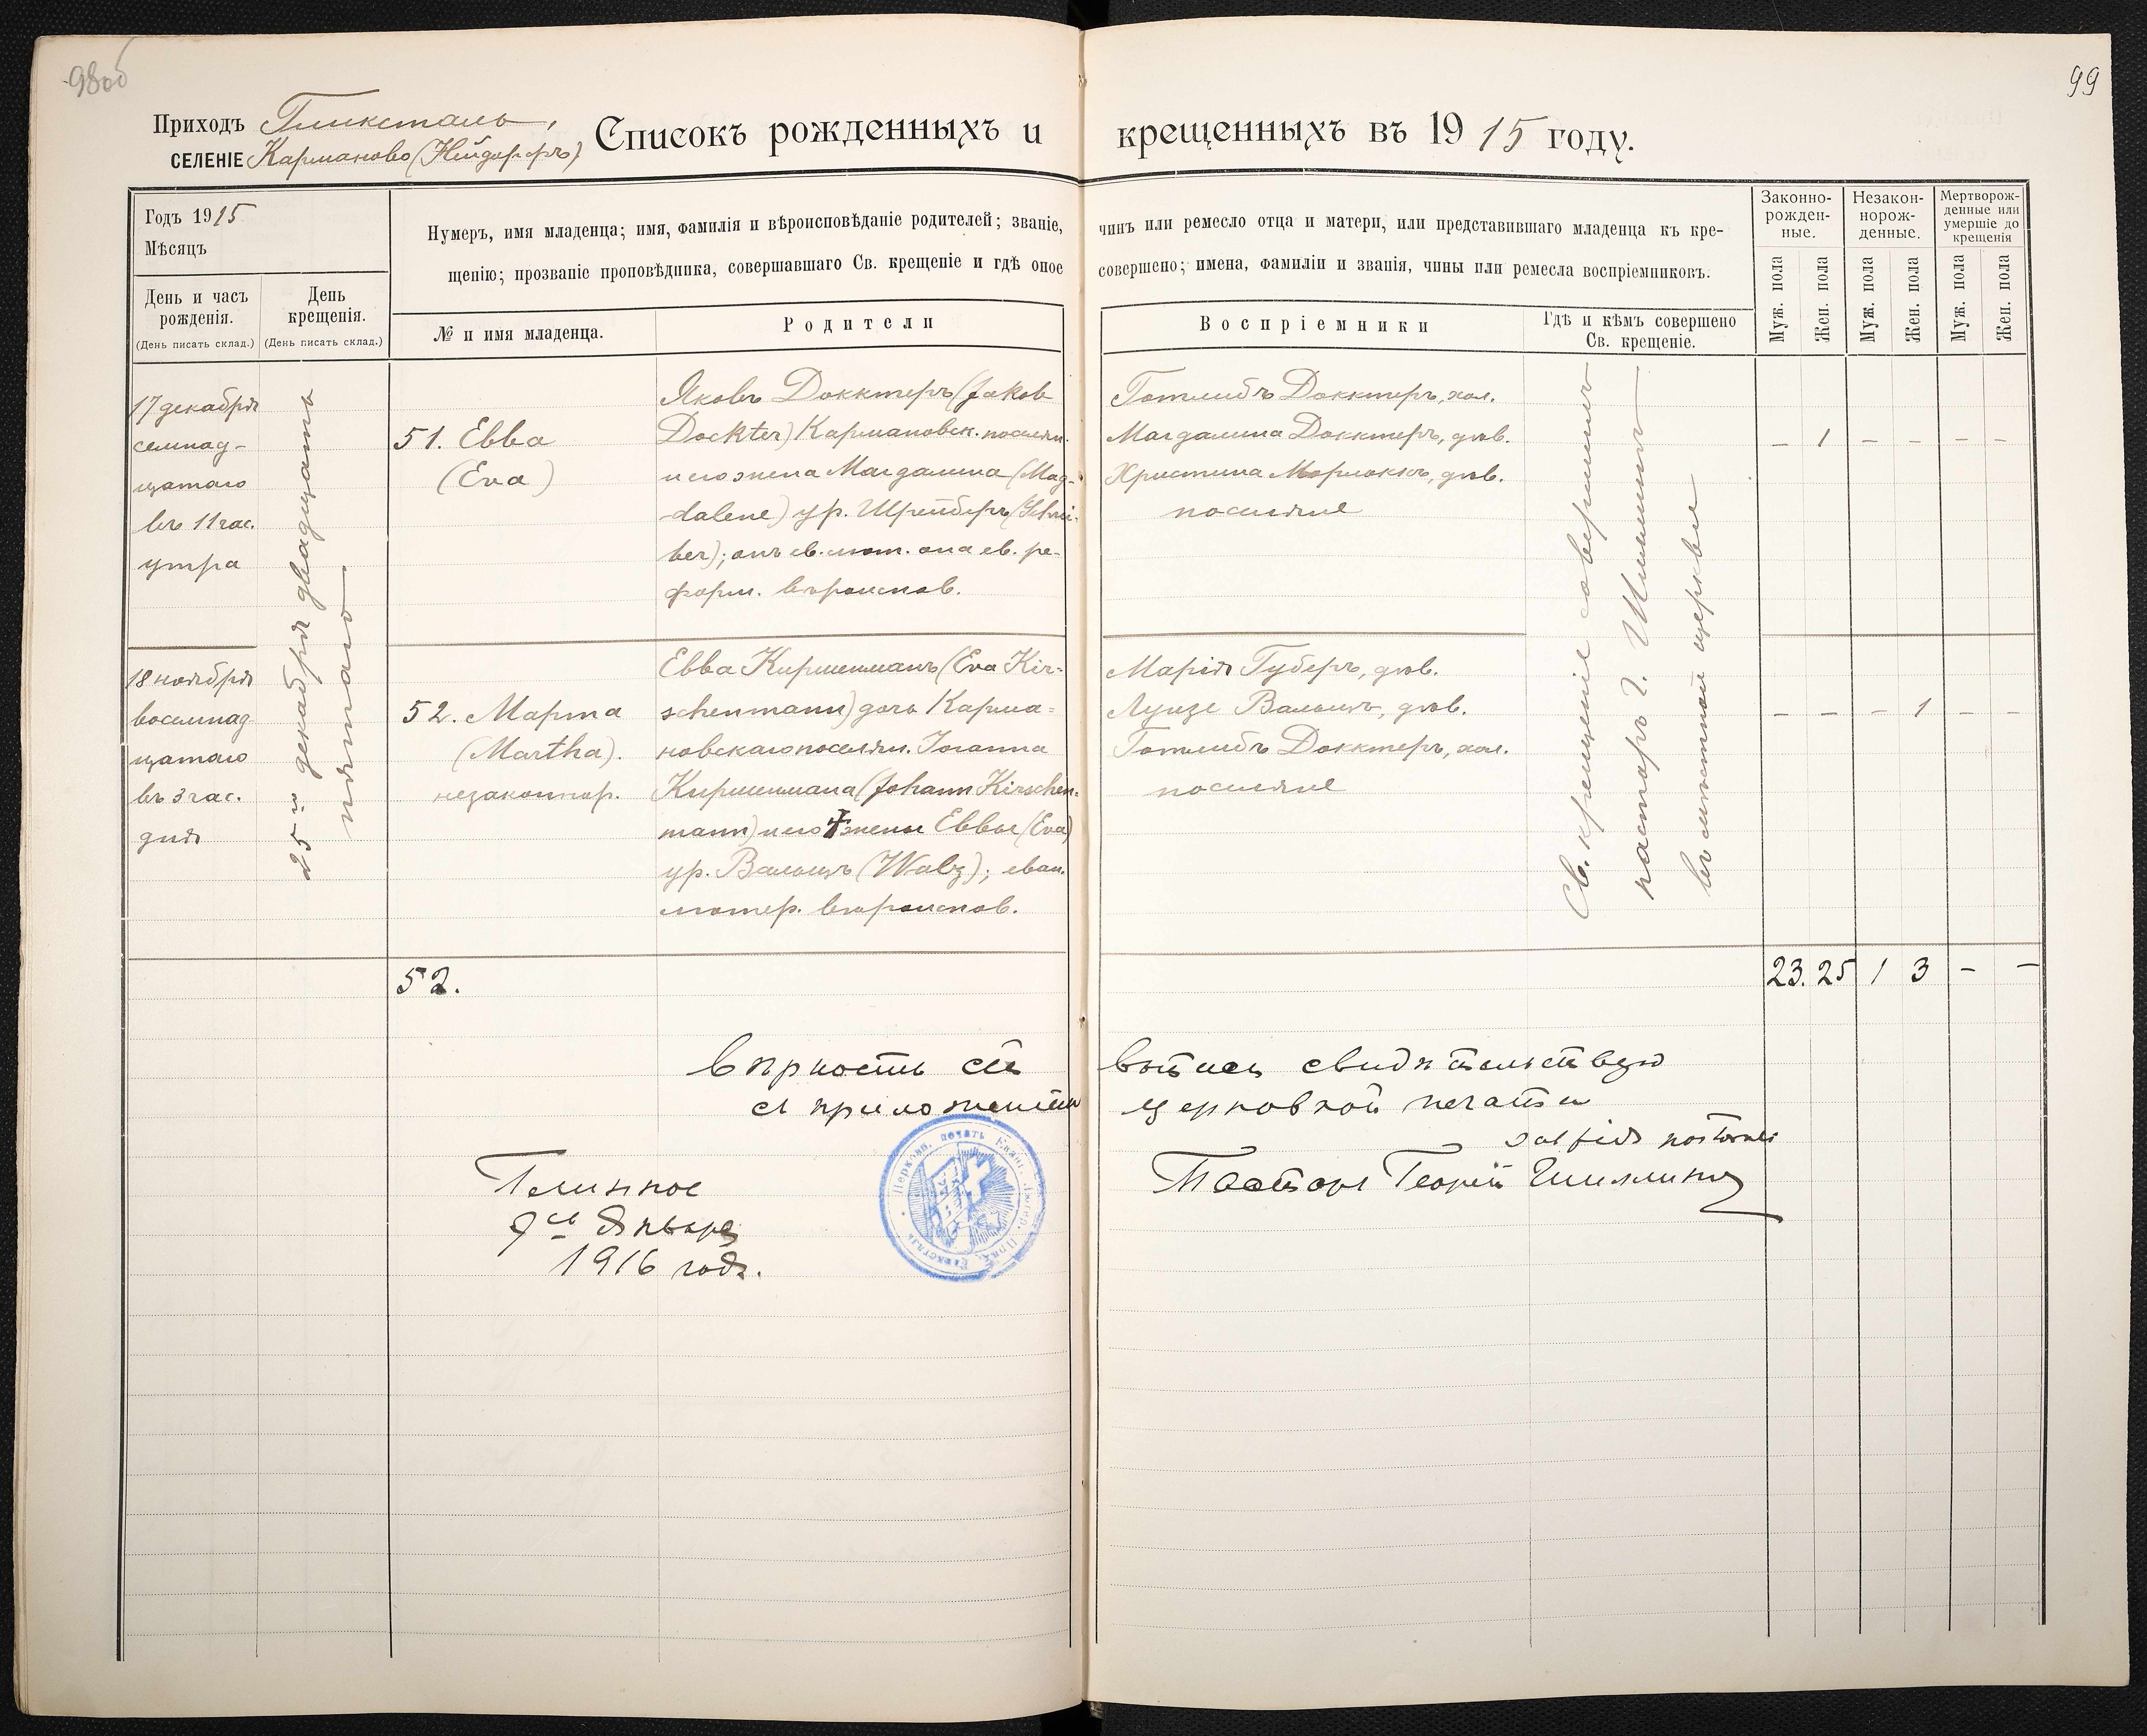 98об
99
Приходъ Глюксталь,
СЕЛЕНІЕ Карманово (Нейдорфъ)
Списокъ рожденныхъ и крещенныхъ въ 1915 году.
Годъ 1915
Мѣсяцъ
День и часъ рожденія.
(День писать склад.)
День крещенія.
(День писать склад.)
Нумеръ, имя младенца; имя, фамилія и вѣроисповѣданіе родителей; званіе, чинъ или ремесло отца и матери, или представившаго младенца къ кре-
щенію; прозваніе проповѣдника, совершавшаго Св. крещеніе и гдѣ оное совершено; имена, фамиліи и званія, чины или ремесла воспріемниковъ.
№ и имя младенца.
Родители
Воспріемники
Гдѣ и кѣмъ совершено
Св. крещеніе.
Законно-
рожден-
ные.
Незакон-
норож-
денные.
Мертворож-
денные или
умершіе до
крещенія
Муж. пола
Жен. пола
Муж. пола
Жен. пола
Муж. пола
Жен. пола
17 декабря
семнад-
цатаго
въ 11 час.
утра
25го декабря двадцать
пятаго
51. Евва
(Eva)
Яковъ Доктеръ (Jakob
Dockter) Кармановск. поселян.
и его жена Магдалина (Mag-
dalene) ур. Шрейберъ (Schrei-
ber); онъ ев. лют. она ев. ре-
форм. вѣроиспов.
Готлибъ Доктеръ, хол.
Магдалина Доктеръ, дѣв.
Христина Морлокъ, дѣв.
поселяне
Св. крещеніе совершилъ
пасторъ Г. Шиллингъ
въ мѣстной церкви
– 1 – – – –
18 ноября
восемнад
цатаго
въ 3 час.
дня
52. Марта
(Martha).
незаконнор.
Евва Киршенманъ (Eva Kir-
schenmann) дочь Карма-
новскаго поселян. Іоганна
Киршенмана (Johann Kirschen-
mann) и его жены Еввы (Eva)
ур. Вальцъ (Walz); еван.
лютер. вѣроиспов.
Марія Губеръ, дѣв.
Луизе Вальцъ, дѣв.
Готлибъ Доктеръ, хол.
поселяне
– – – 1 – –
52.
23. 25 1 3 – –
Вѣрность сей выписи свидѣтельствую
съ приложеніемъ церковной печати
sub fide pastorali
Пасторъ Георгій Шиллингъ
Глинное
9го Января
1916 года.
Церковн. печать Еванг. Лютер. Прих. Глюксталь